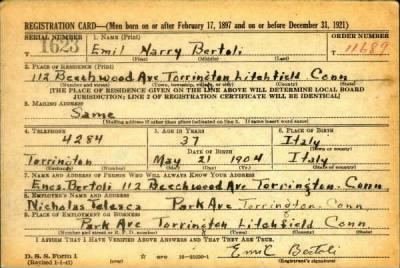 REGISTRATION CARD—(Men born on or after February 17, 1897 and on or before December 31, 1921)
SERIAL NUMBER 1. NAME (Print) ORDER NUMBER
1623 Emil Harry Bertoli 11689
(First) (Middle) (Last)
2. PLACE OF RESIDENCE (Print)
112 Beechwood Ave Torrington Litchfield Conn
(Number and street) (Town, township, village, or city) (County) (State)
[THE PLACE OF RESIDENCE GIVEN ON THE LINE ABOVE WILL DETERMINE LOCAL BOARD
JURISDICTION; LINE 2 OF REGISTRATION CERTIFICATE WILL BE IDENTICAL]
3. MAILING ADDRESS
Same
[Mailing address if other than place indicated on line 2. If same insert word same]
4. TELEPHONE 5. AGE IN YEARS 6. PLACE OF BIRTH
4284 37 Italy
DATE OF BIRTH (Town or county)
Torrington May 21 1904 Italy
(Exchange) (Number) (Mo.) (Day) (Yr.) (State or country)
7. NAME AND ADDRESS OF PERSON WHO WILL ALWAYS KNOW YOUR ADDRESS
Enes Bertoli 112 Beechwood Ave Torrington Conn
8. EMPLOYER'S NAME AND ADDRESS
Nicholas Park Ave Torrington Conn
9. PLACE OF EMPLOYMENT OR BUSINESS
Park Ave Torrington Litchfield Conn
(Number and street or R. F. D. number) (Town) (County) (State)
I AFFIRM THAT I HAVE VERIFIED ABOVE ANSWERS AND THAT THEY ARE TRUE.
D. S. S. Form 1 Emil Bertoli
(Revised 1-1-42) (over) (Registrant's signature)